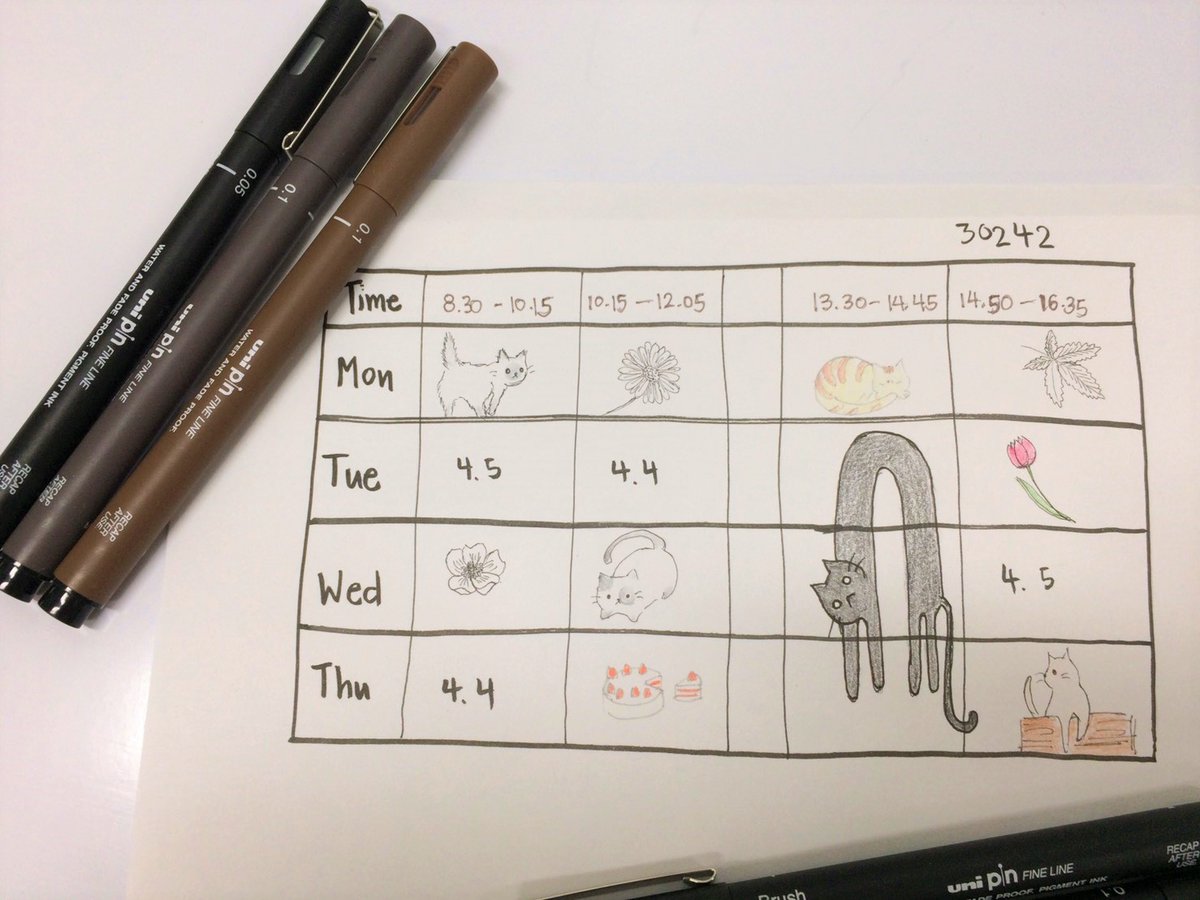 0.05
WATER AND FADE PROOF. PIGMENT INK
uni pin FINE LINE
RECAP AFTER USE
0.1
uni pin FINE LINE
RECAP AFTER USE
0.1
WATER AND FADE PROOF.
uni pin FINE LINE
RECAP AFTER USE
30242
Time 8.30 - 10.15 10.15 - 12.05 13.30 - 14.45 14.50 - 16.35
Mon
Tue 4.5 4.4
Wed 4.5
Thu 4.4
Brush
uni pin FINE LINE
FADE PROOF. PIGMENT INK
0.1
RECAP
AFTER
USE